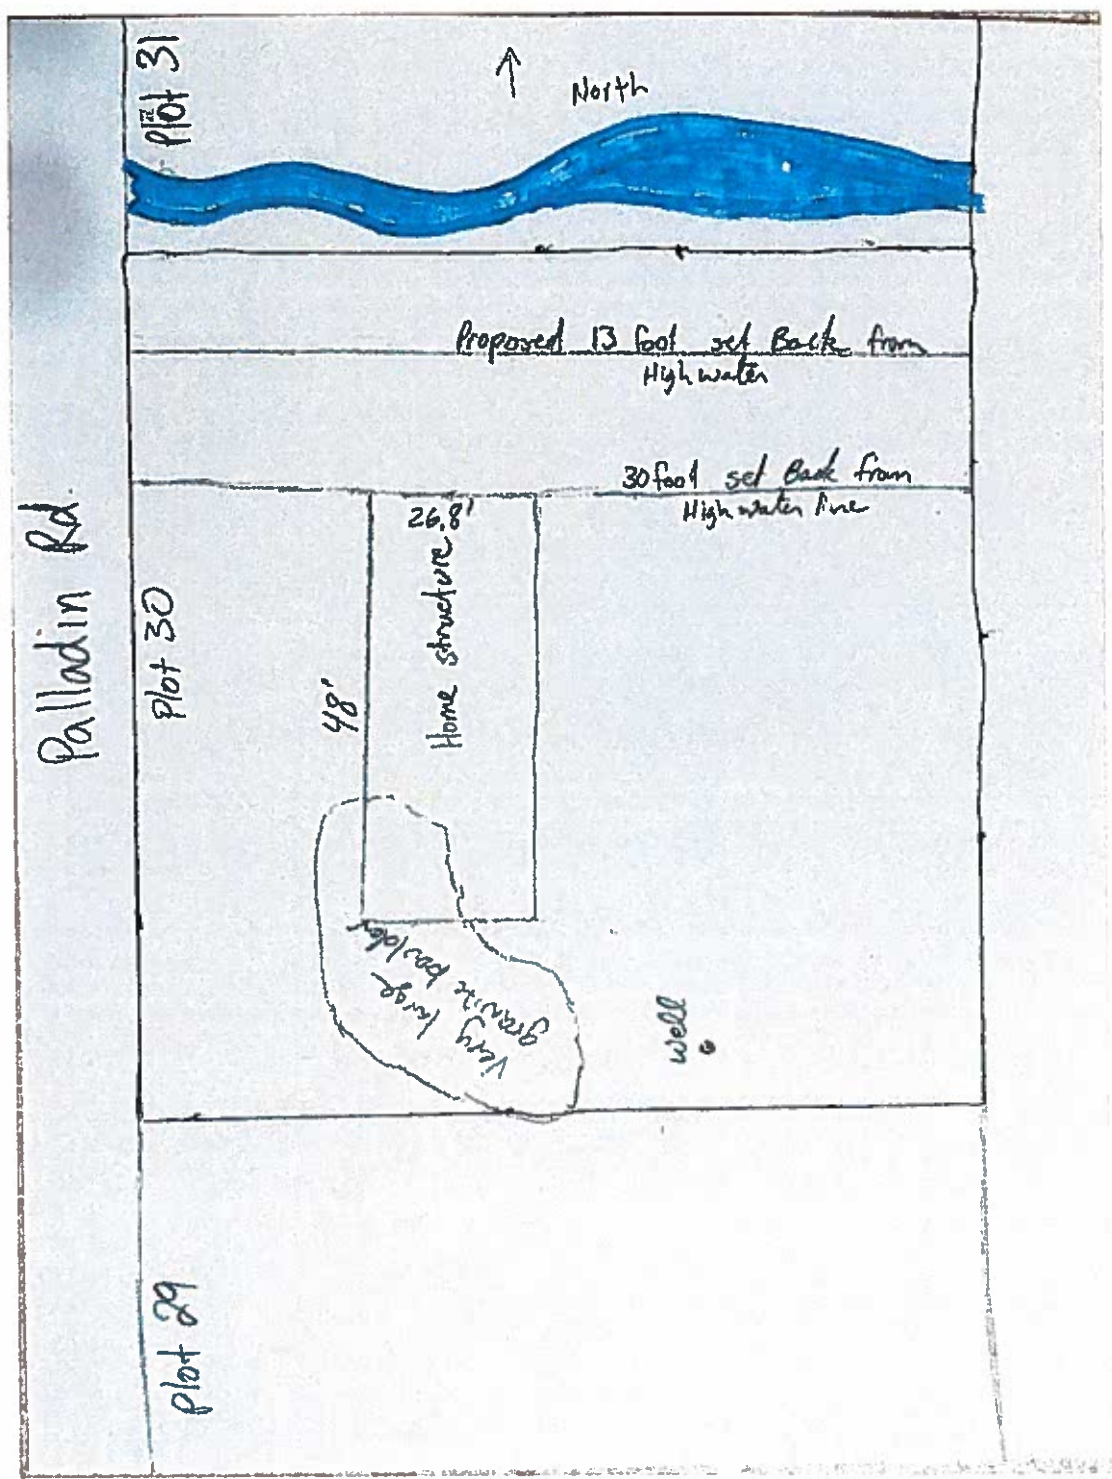 Plot 31
North
Proposed 13 foot set Back from
High water
30 foot set Back from
High water line
Palladin Rd.
Plot 30
26.8'
48'
Home structure
Very large
granite boulder
well
plot 29